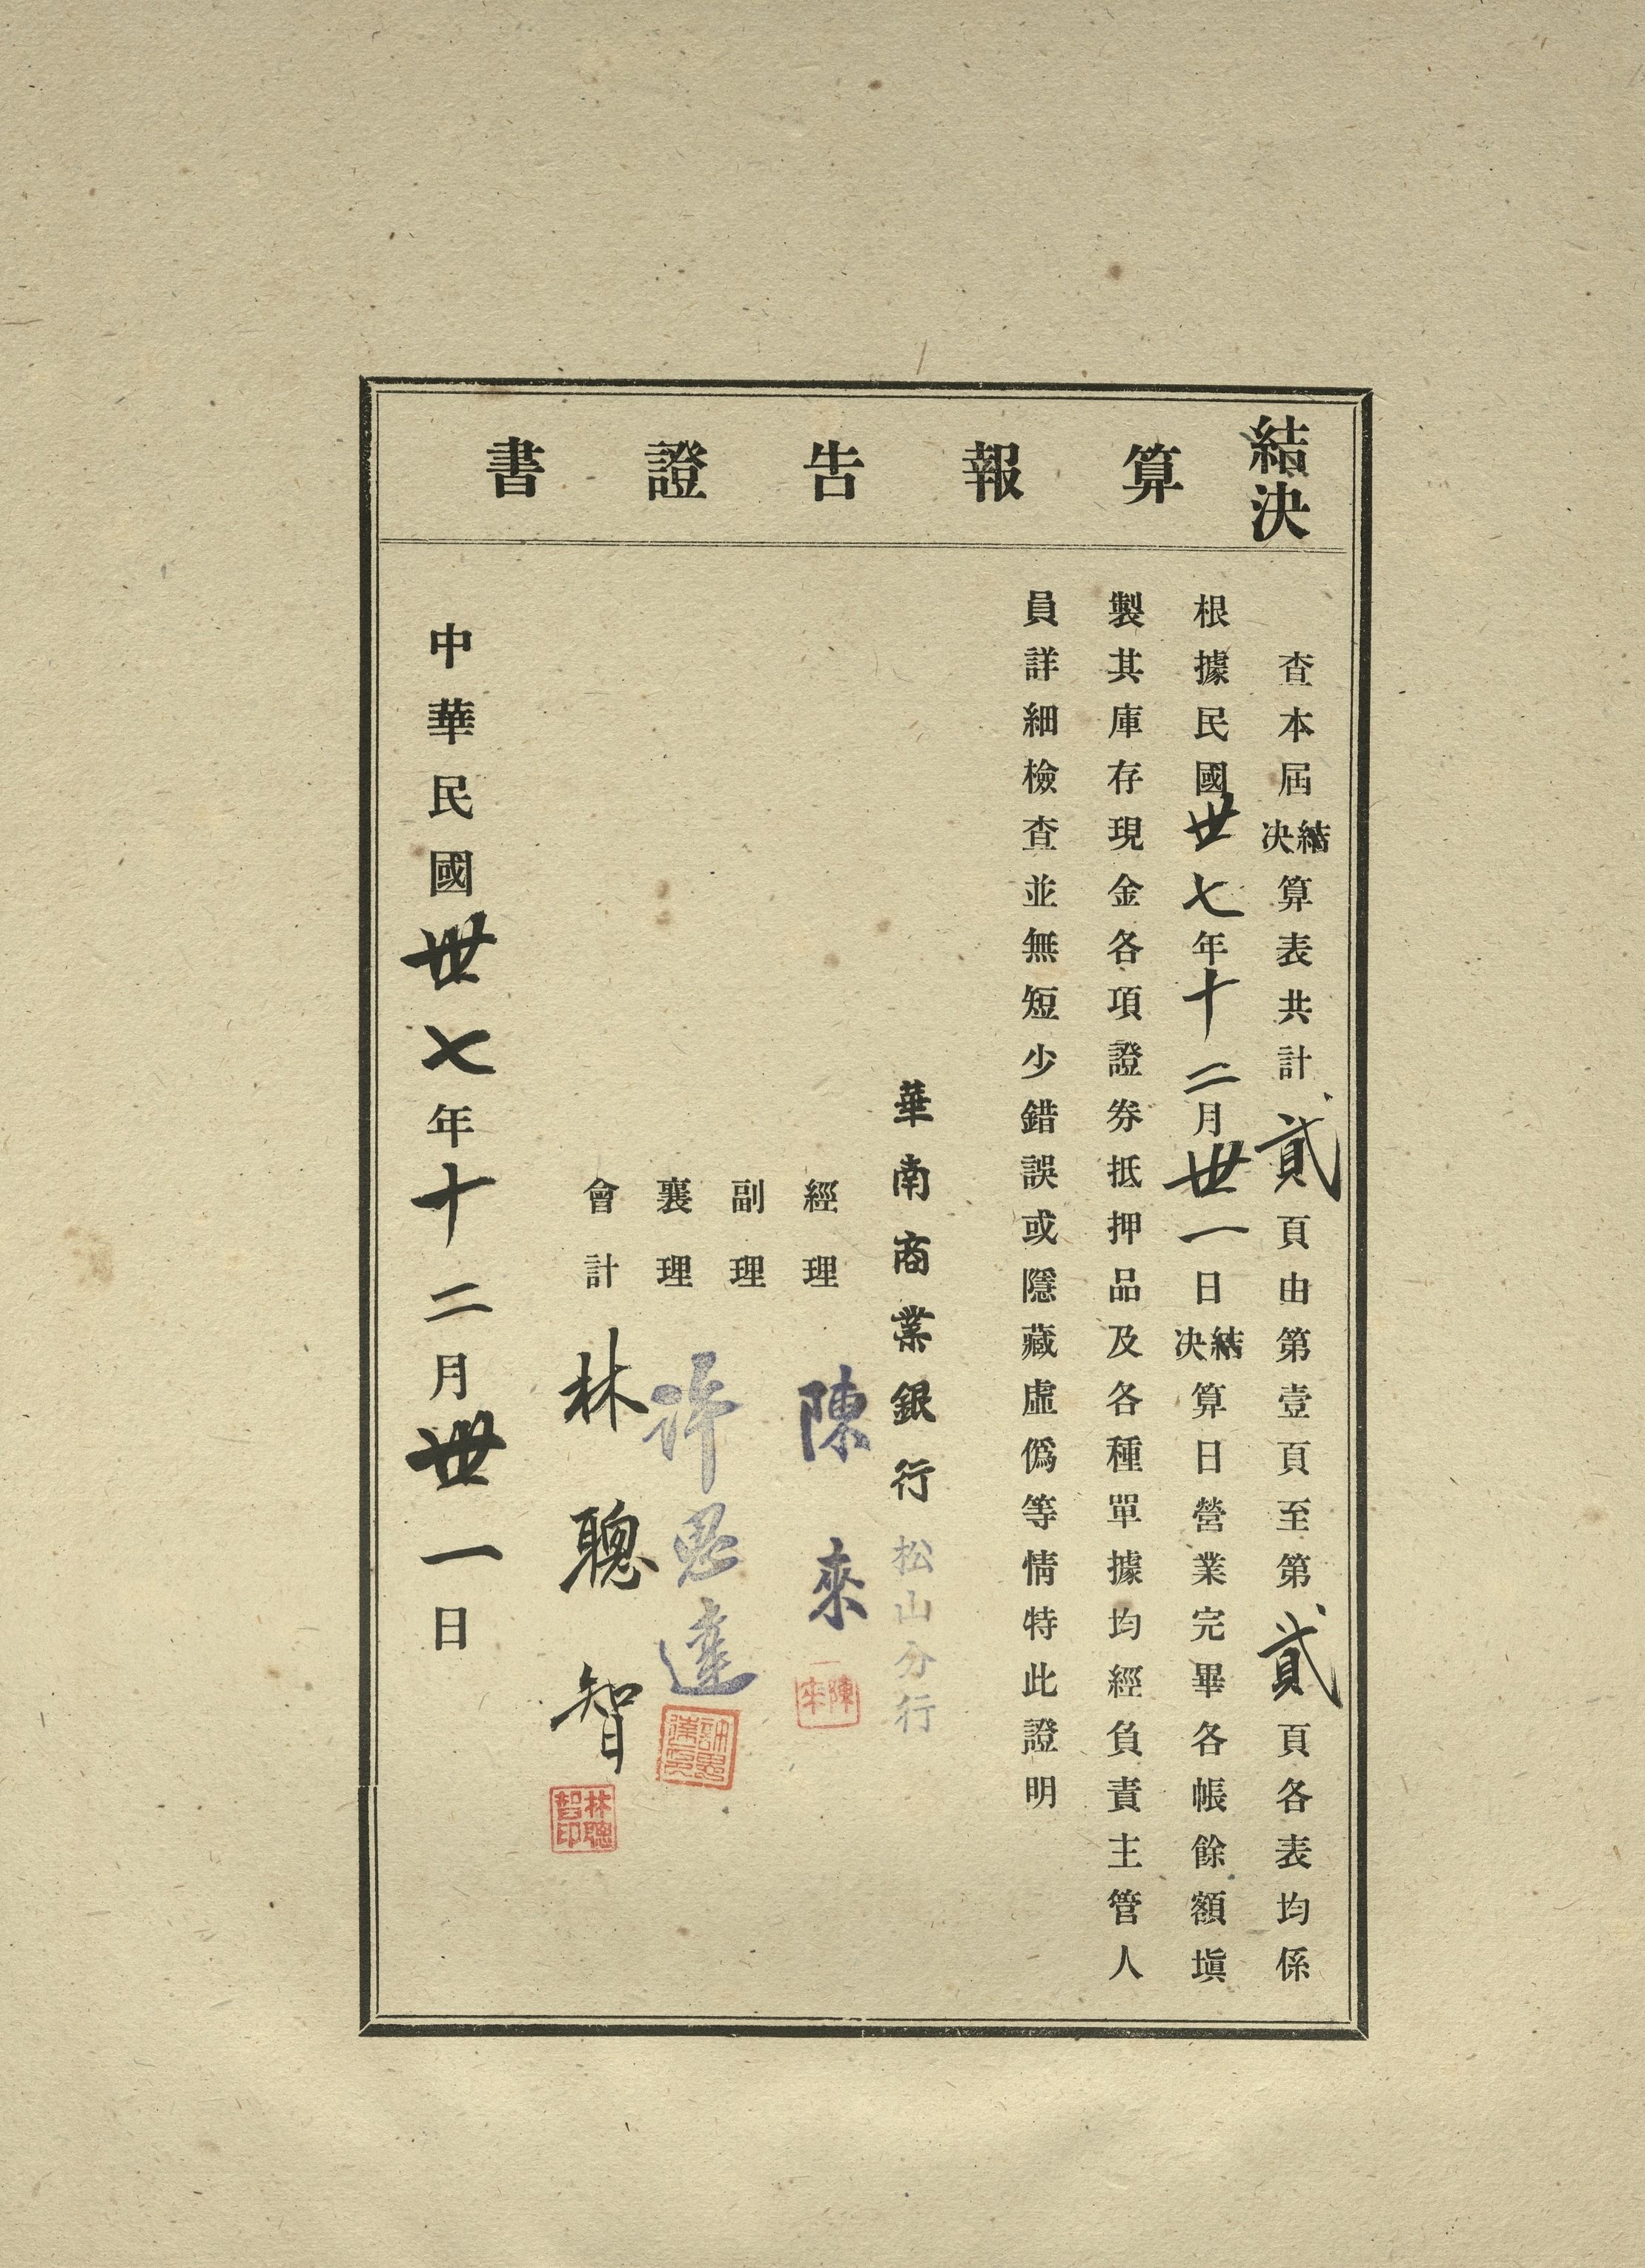 結決算報告證書
查本屆結決算表共計貳頁由第壹頁至第貳頁各表均係
根據民國卅七年十二月卅一日結決算日營業完畢各帳餘額塡
製其庫存現金各項證券抵押品及各種單據均經負責主管人
員詳細檢查並無短少錯誤或隱藏虛僞等情特此證明
華南商業銀行松山分行
經理 陳來
陳來
副理
襄理 許思達
會計 林聰智
林聰智印
中華民國卅七年十二月卅一日